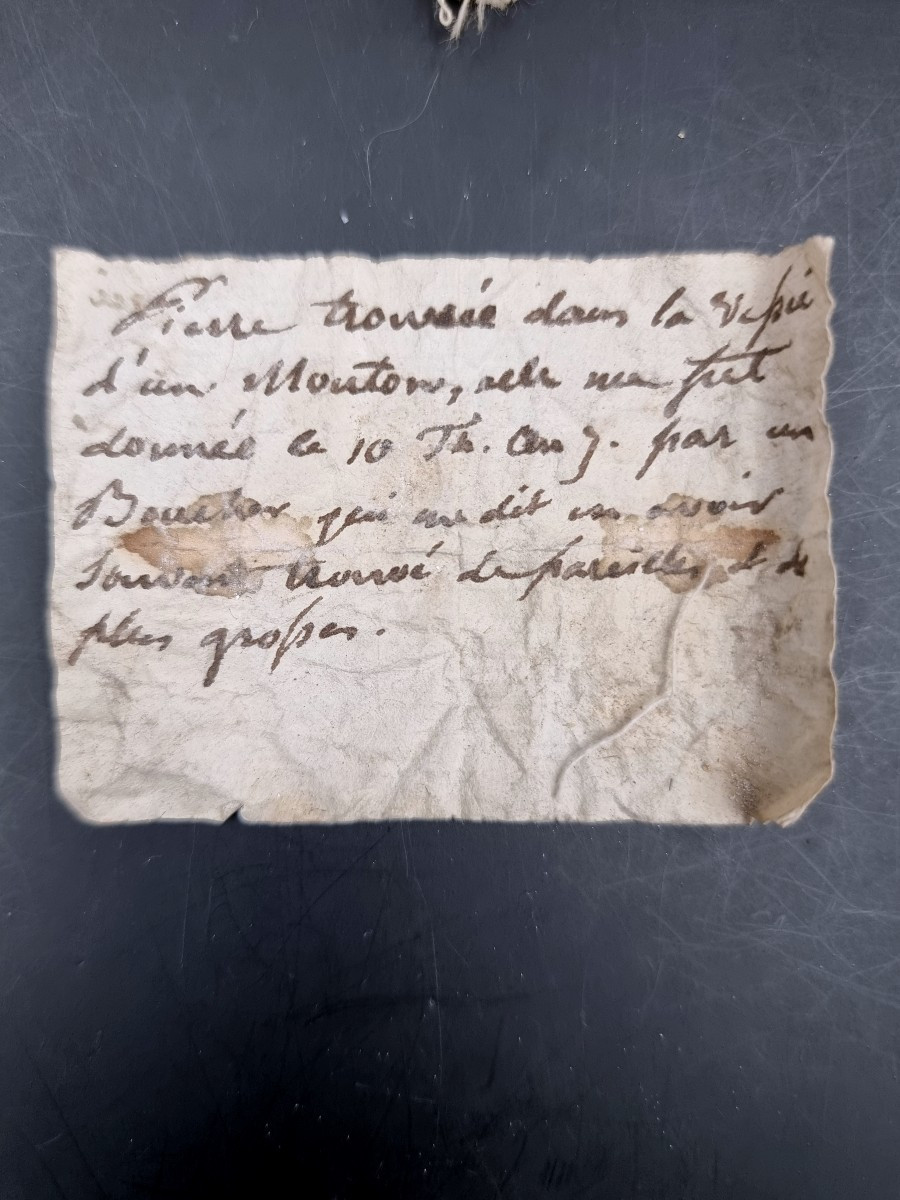 Pierre trouvée dans la Vessie
d'un Mouton, elle me fut
donnée le 10 Th. an 7. par un
Boucher qui me dit en avoir
Souvent trouvé de pareilles et de
plus grosses.